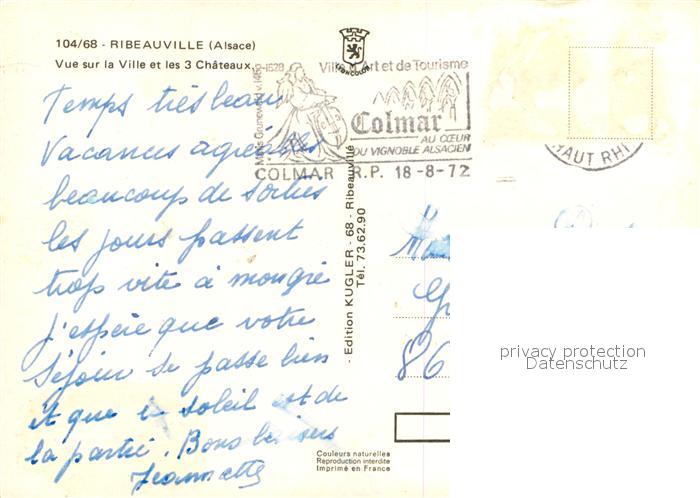 104/68 - RIBEAUVILLE (Alsace)
Vue sur la Ville et les 3 Châteaux.
Temps très beau
Vacances agréables
beaucoup de sorties
les jours passent
trop vite à mongré
j'espère que votre
séjour se passe bien
et que le soleil est de
la partie. Bons baisers
Jeannette
Ville d'Art et de Tourisme
Colmar
AU CŒUR
DU VIGNOBLE ALSACIEN
COLMAR R.P. 18-8-72
HAUT RHI
- Edition KUGLER - 68 - Ribeauvillé
Tél. 73.62.90
86
privacy protection
Datenschutz
Couleurs naturelles
Reproduction interdite
Imprimé en France